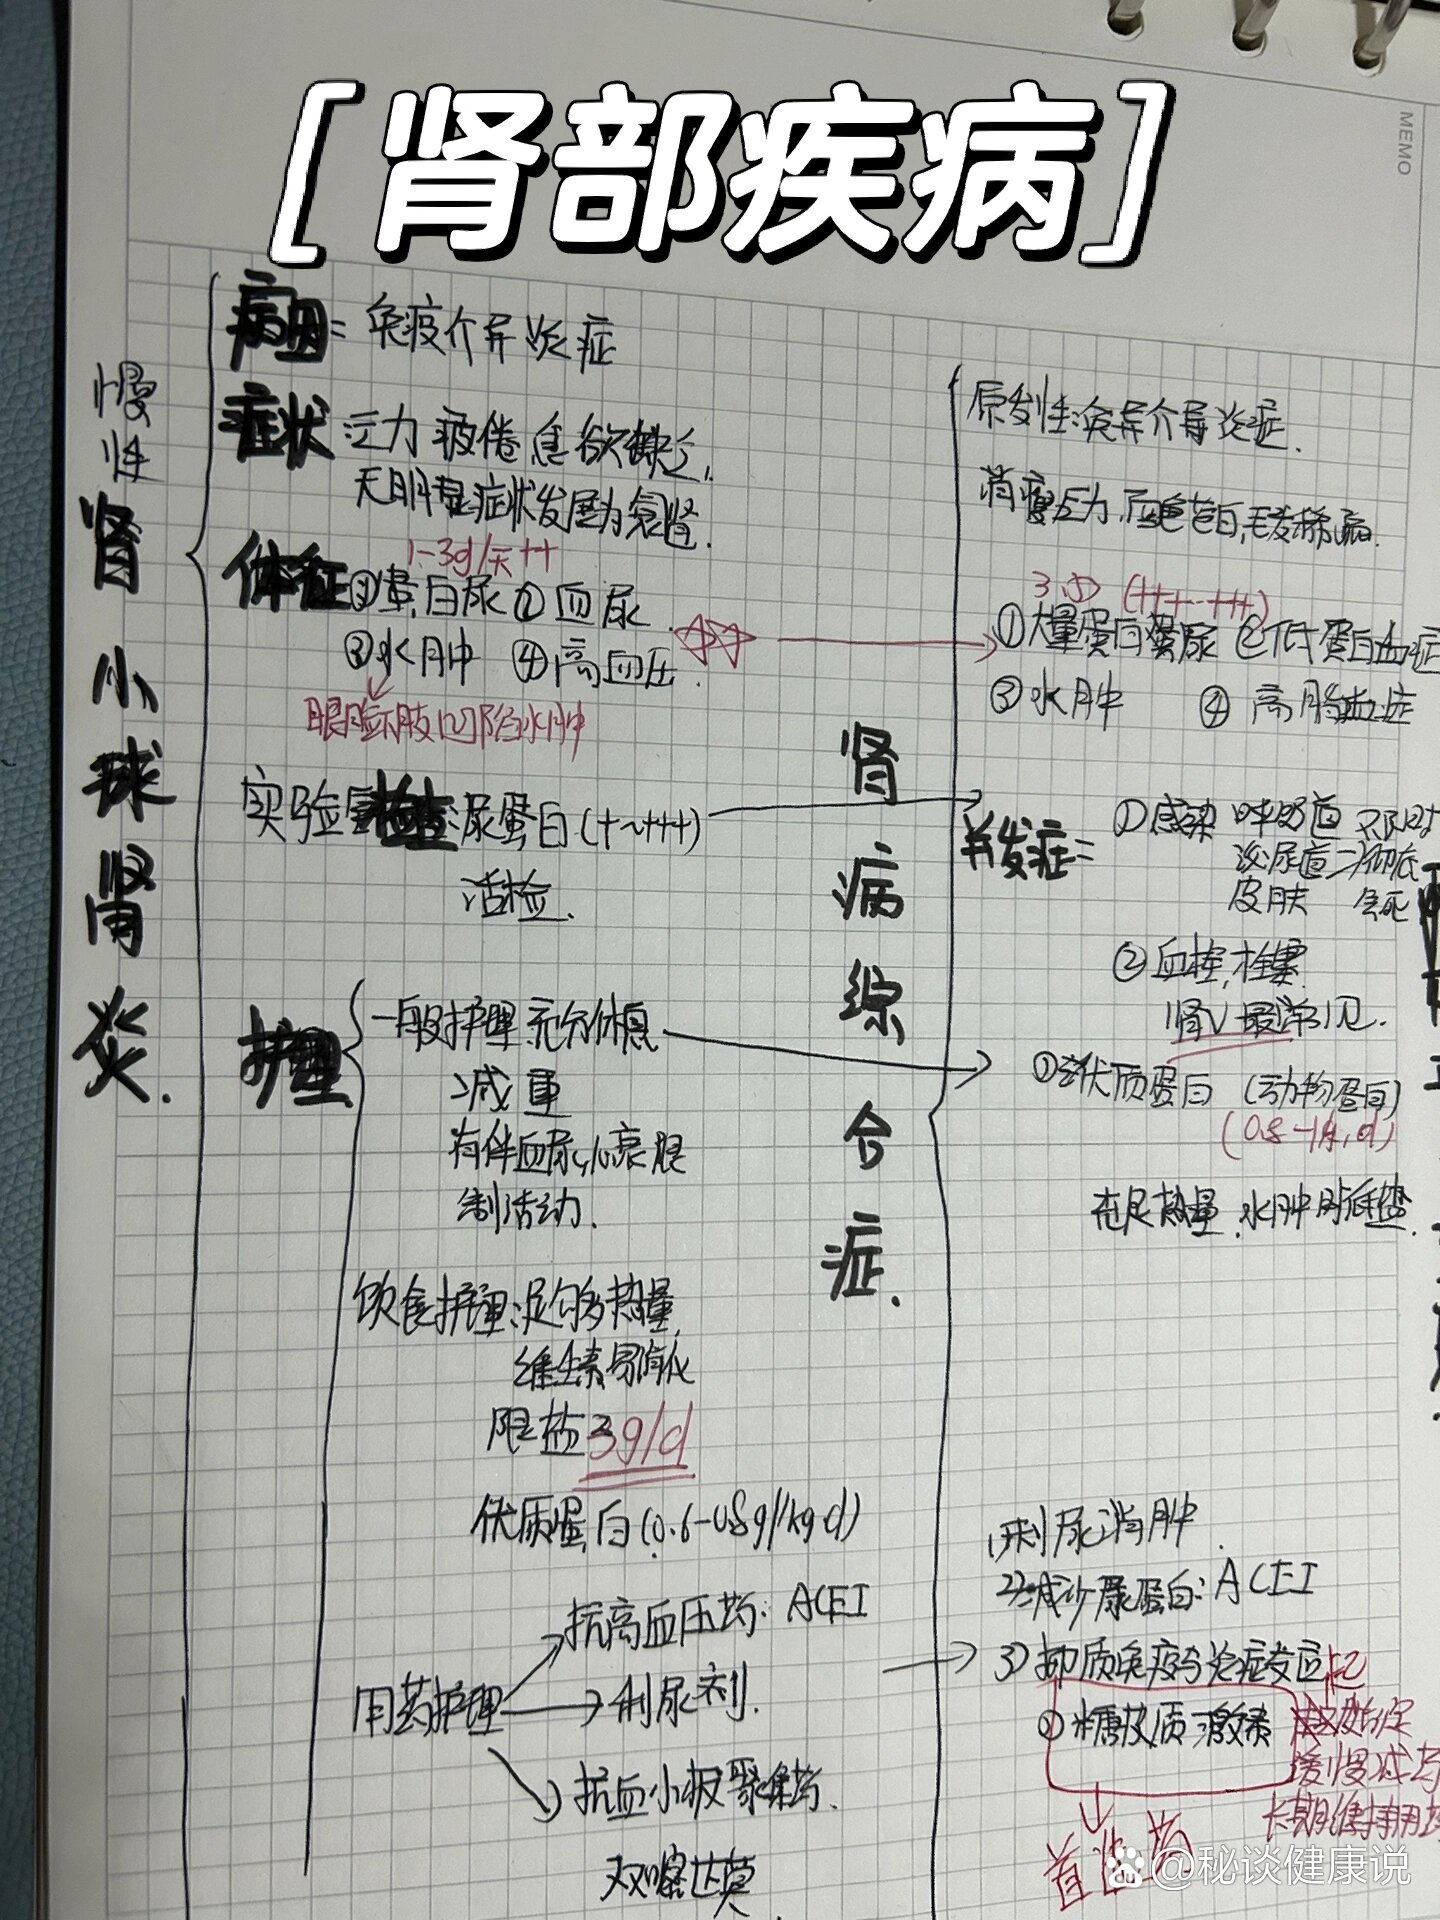 [肾部疾病]
MEMO
慢性肾小球肾炎.
病因: 免疫介导炎症
症状 乏力 疲倦 食欲缺乏.
无明显症状发展为衰肾.
1-3g/天 ++
体征①蛋白尿②血尿.
③水肿 ④高血压.
眼睑下肢凹陷水肿
实验室检查:尿蛋白(+~+++)
活检.
护理
一般护理 充分休息
减重
有伴血尿,心衰限
制活动.
饮食护理:足够热量,
维生素易消化
限盐 3g/d
优质蛋白(0.6-0.8g/kg.d)
用药护理
抗高血压药: ACEI
利尿剂.
抗血小板聚集药.
双嘧达莫
肾病综合症.
原发性:免异介导炎症.
消瘦乏力,面色苍白,毛发稀疏.
①大量蛋白尿 ②低蛋白血症
③水肿 ④高脂血症
并发症:
①感染 呼吸道 不及时
泌尿道 彻底
皮肤 会死
②血栓,栓塞
肾V最常见.
①优质蛋白 (动物蛋白)
充足热量,水肿时低盐.
1)利尿消肿.
2)减少尿蛋白: ACEI
3)抑质免疫与炎症反应
①糖皮质激素
起始足
缓慢减药
长期维持用药
首选药
@秘谈健康说